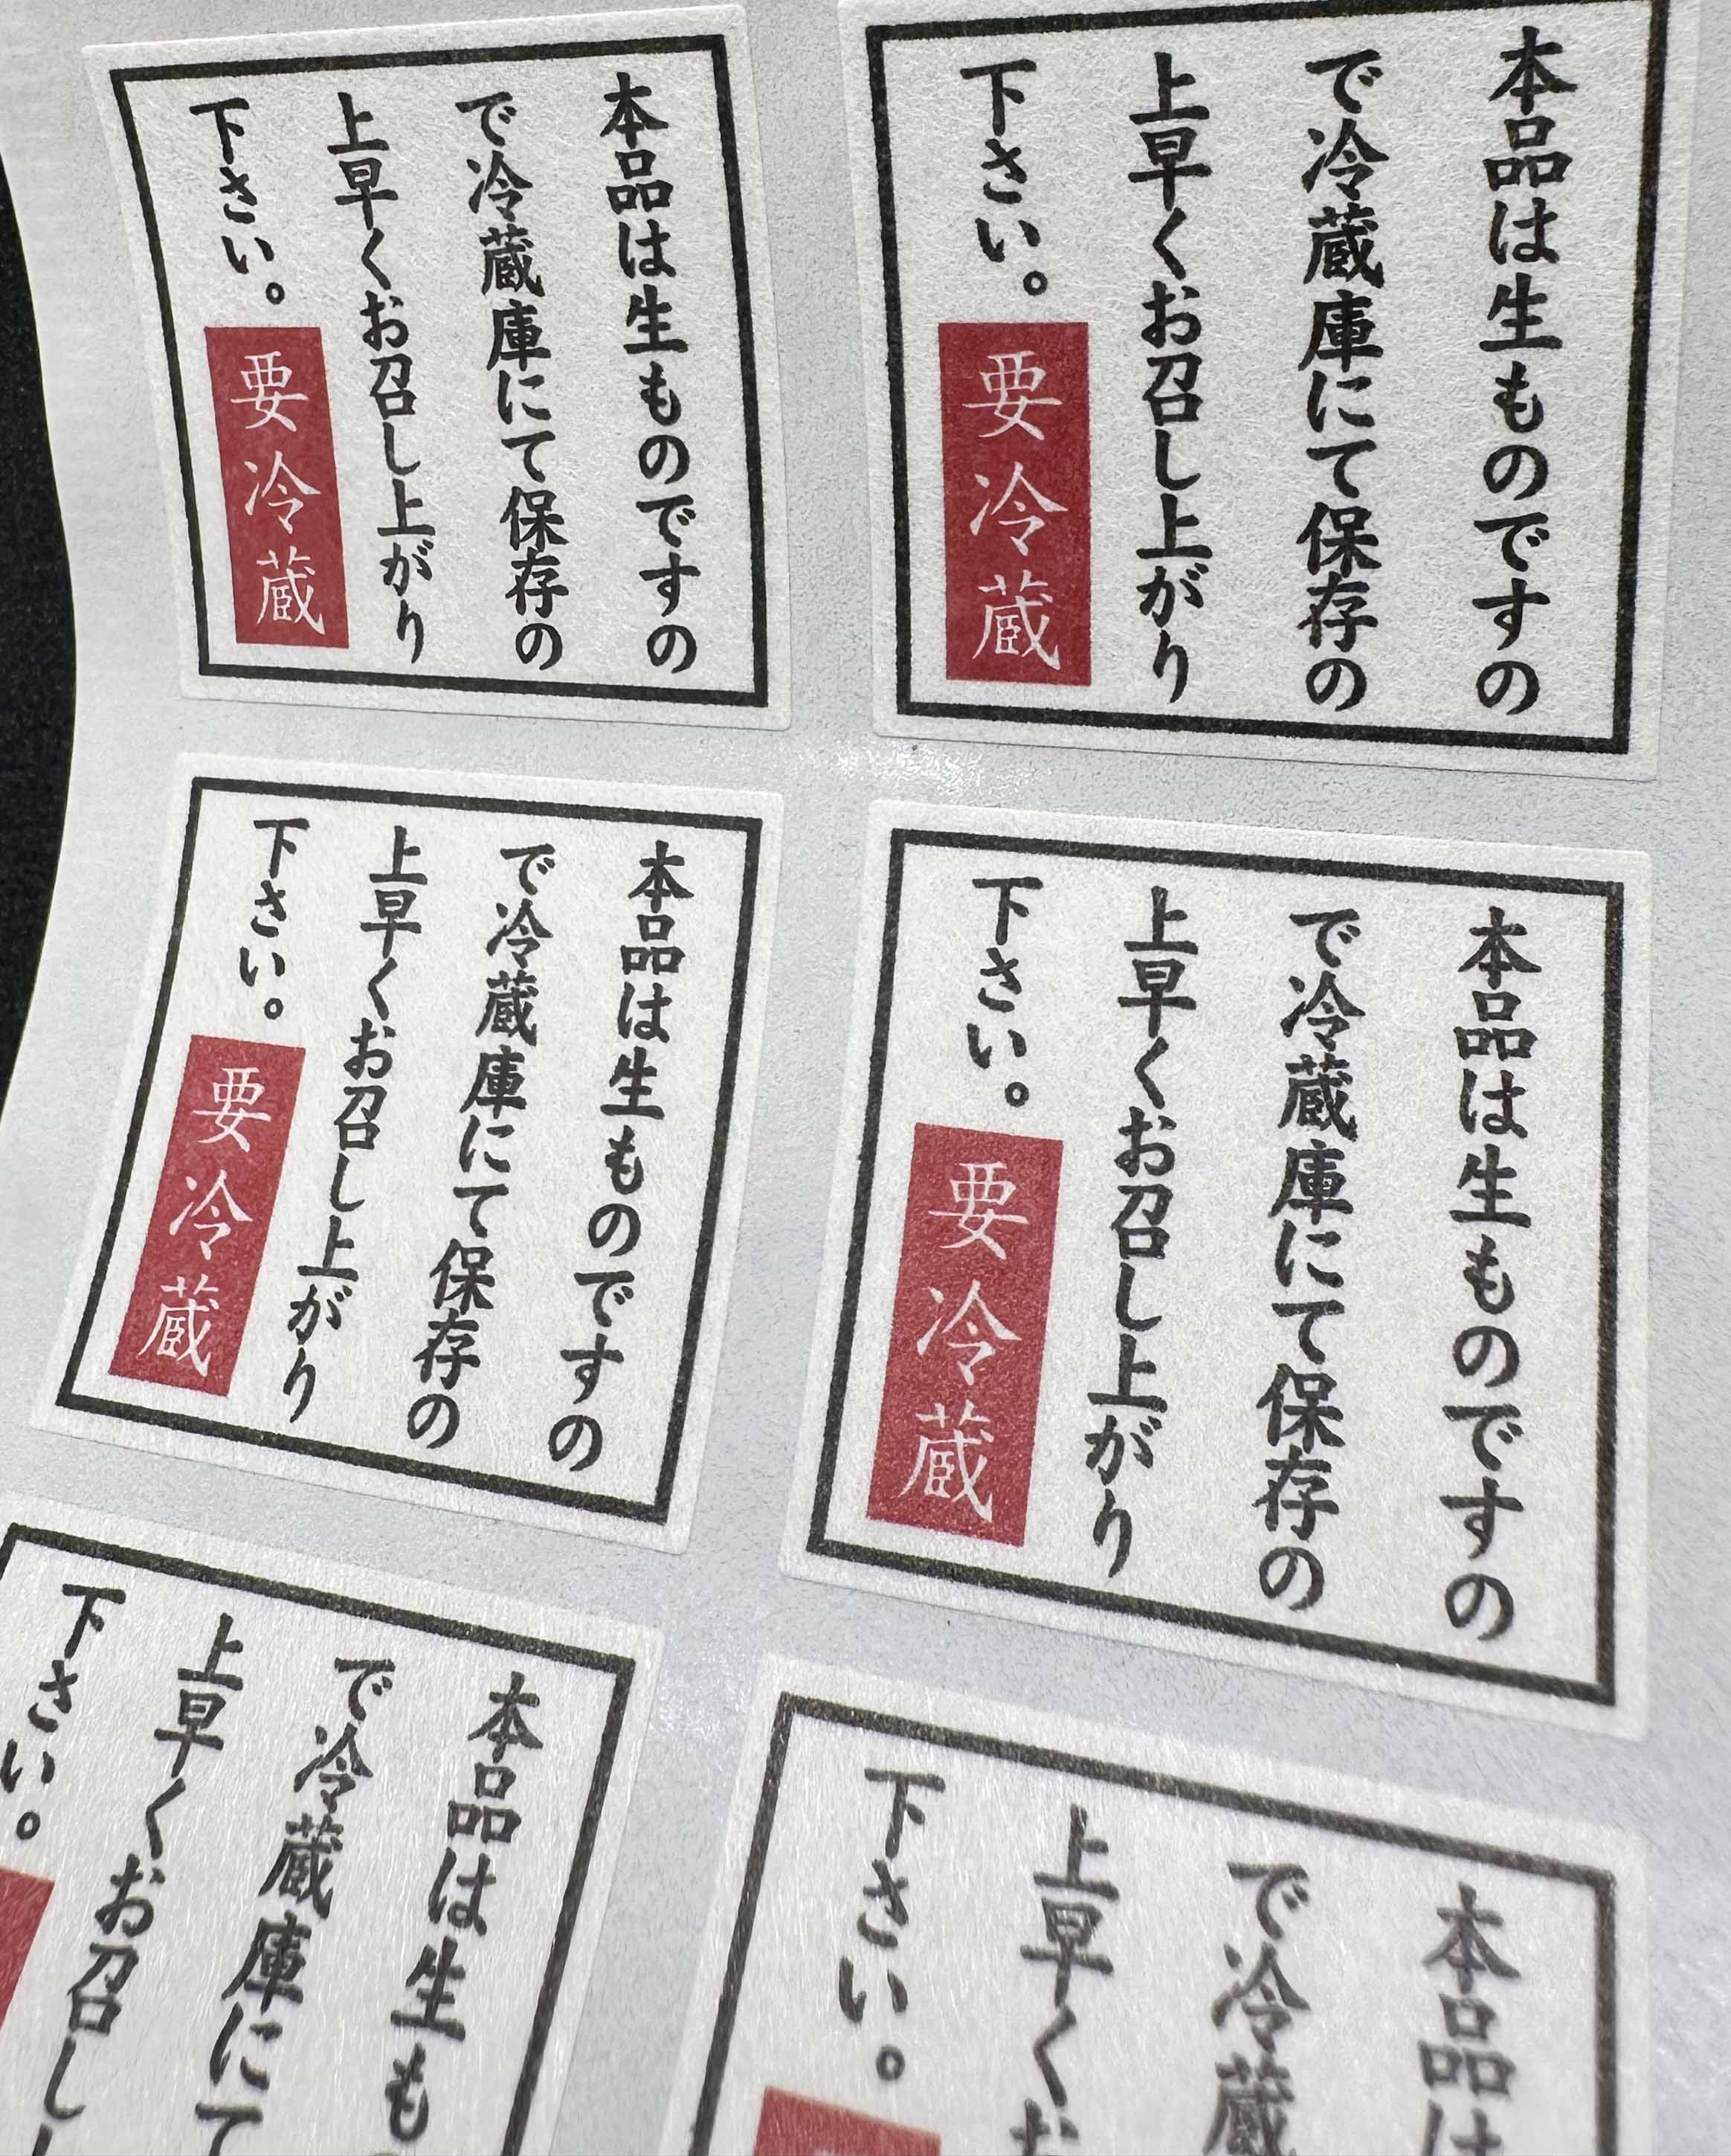 本品は生ものですの
で冷蔵庫にて保存の
上早くお召し上がり
下さい。
要冷蔵
本品は生ものですの
で冷蔵庫にて保存の
上早くお召し上がり
下さい。
要冷蔵
本品は生ものですの
で冷蔵庫にて保存の
上早くお召し上がり
下さい。
要冷蔵
本品は生ものですの
で冷蔵庫にて保存の
上早くお召し上がり
下さい。
要冷蔵
本品は生も
で冷蔵庫にて
上早くお召し
下さい。
本品は
で冷蔵
上早くお
下さい。